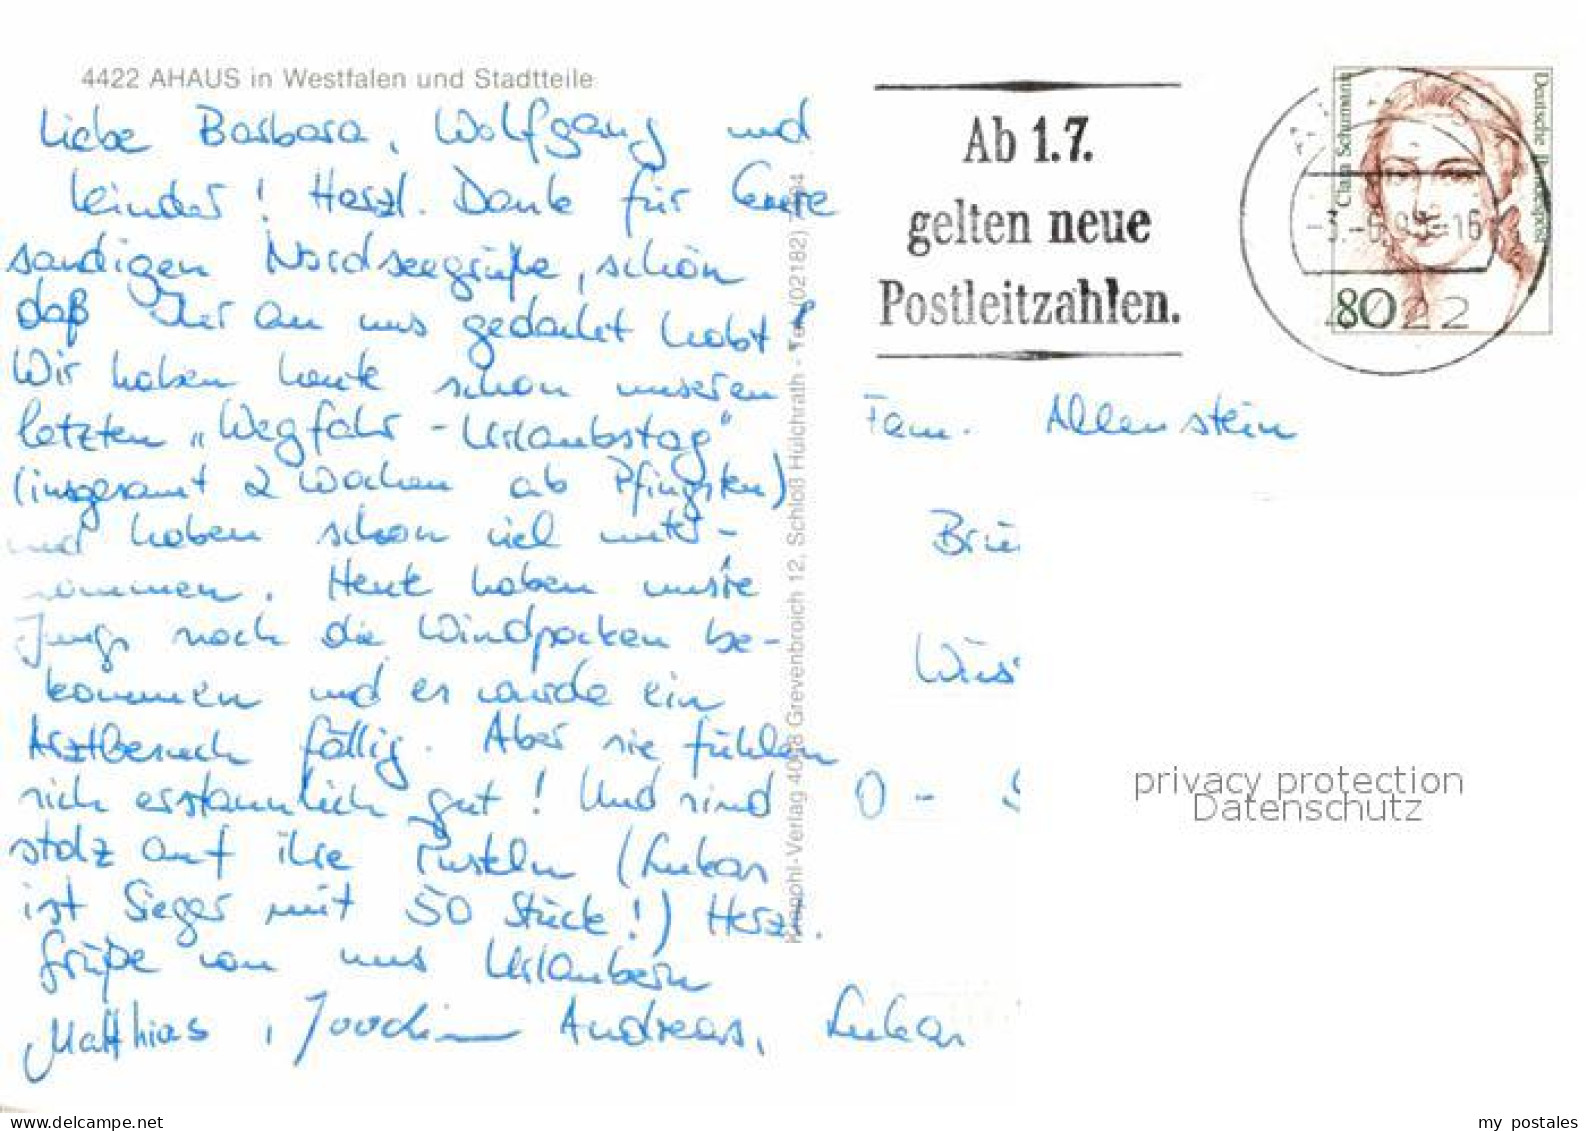 4422 AHAUS in Westfalen und Stadtteile
Liebe Barbara, Wolfgang und
Kinder! Herzl. Dank für Eure
sandigen Nordseegrüße, schön
daß Ihr an uns gedacht habt!
Wir haben heute schon unseren
letzten „Wegfahr-Urlaubstag"
(insgesamt 2 Wochen ab Pfingsten)
und haben schon viel unter-
nommen. Heute haben unsre
Jungs noch die Windpocken be-
kommen und es wurde ein
Arztbesuch fällig. Aber sie fühlen
sich erstaunlich gut! Und sind
stolz auf ihre Pusteln (Lukas
ist Sieger mit 50 Stück!) Herzl.
Grüße von uns Urlaubern
Matthias, Joachim Andreas, Lukas
Krapohl-Verlag 4048 Grevenbroich 12, Schloß Hülchrath - Tel. (02182)
Ab 1.7.
gelten neue
Postleitzahlen.
Clara Schumann
Deutsche Bundespost
80
4422
Fam. Allenstein
Brü
Wüs
O -
privacy protection
Datenschutz
my postales